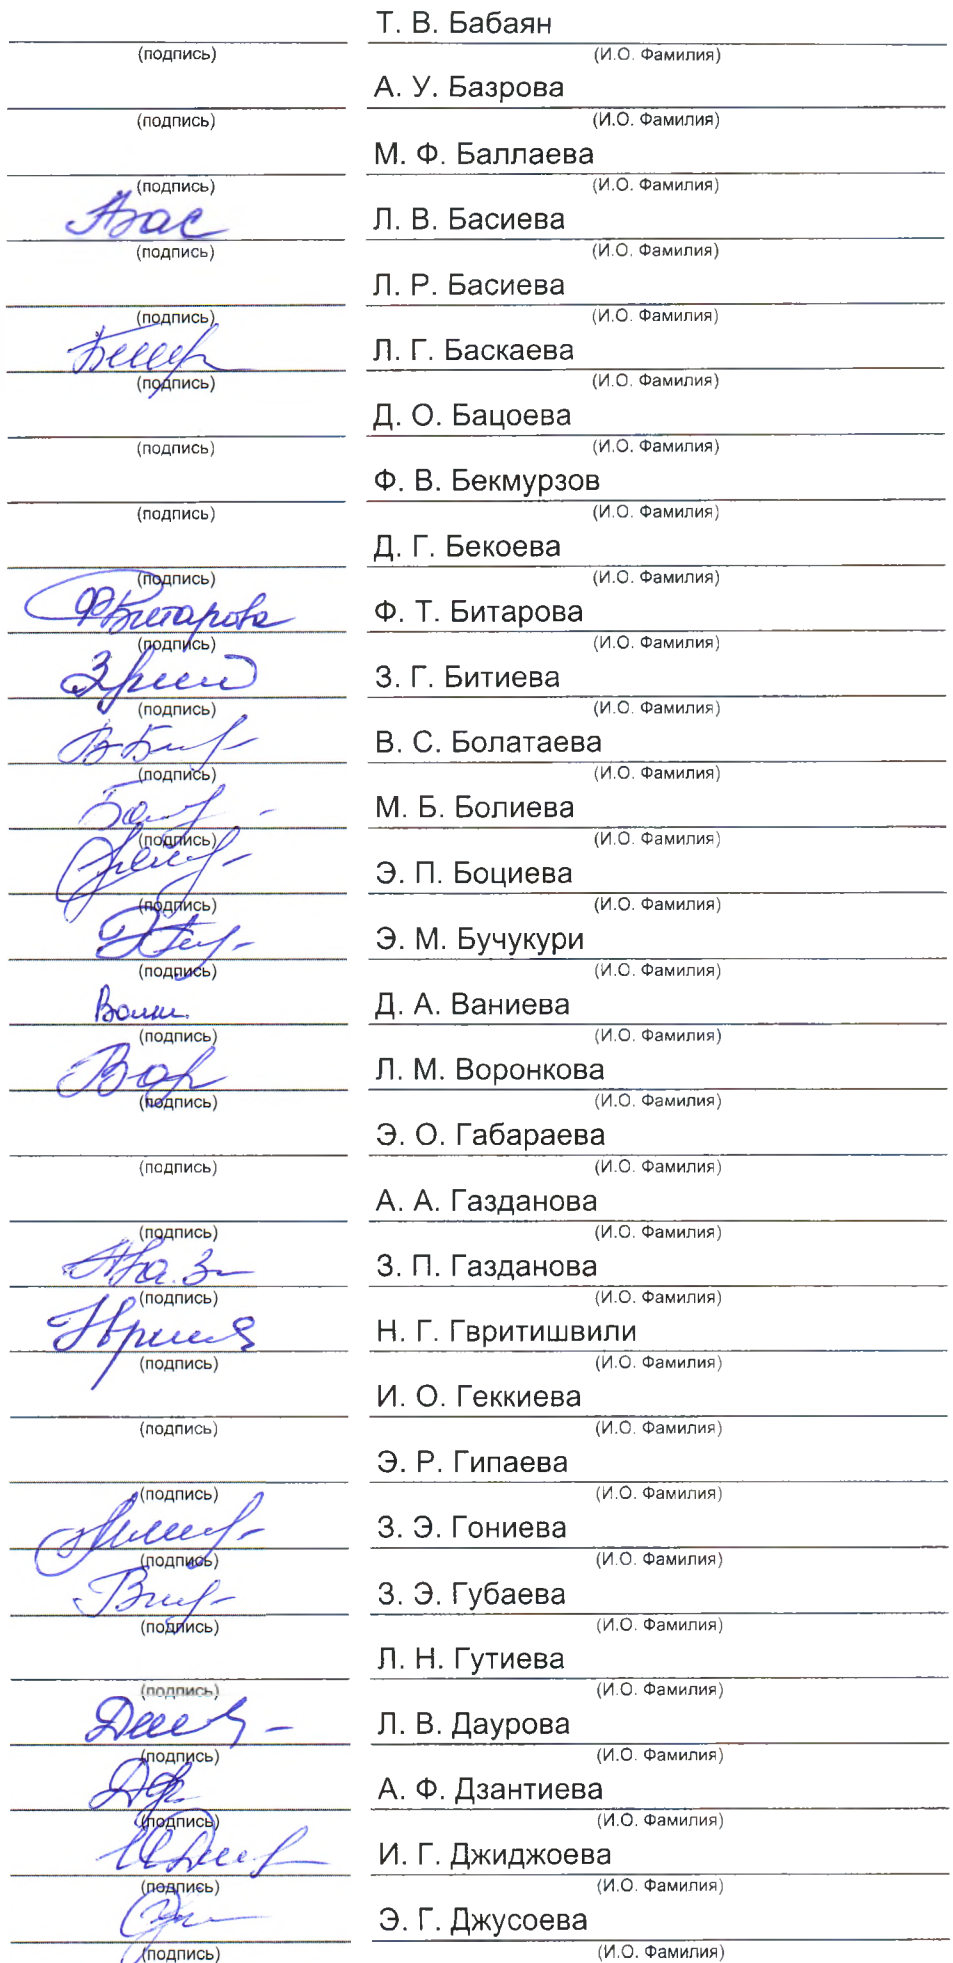 Т. В. Бабаян
(подпись) (И.О. Фамилия)
А. У. Базрова
(подпись) (И.О. Фамилия)
М. Ф. Баллаева
(подпись) (И.О. Фамилия)
Л. В. Басиева
(подпись) (И.О. Фамилия)
Л. Р. Басиева
(подпись) (И.О. Фамилия)
Л. Г. Баскаева
(подпись) (И.О. Фамилия)
Д. О. Бацоева
(подпись) (И.О. Фамилия)
Ф. В. Бекмурзов
(подпись) (И.О. Фамилия)
Д. Г. Бекоева
(подпись) (И.О. Фамилия)
ФБитарова Ф. Т. Битарова
(подпись) (И.О. Фамилия)
З. Г. Битиева
(подпись) (И.О. Фамилия)
В. С. Болатаева
(подпись) (И.О. Фамилия)
М. Б. Болиева
(подпись) (И.О. Фамилия)
Э. П. Боциева
(подпись) (И.О. Фамилия)
Э. М. Бучукури
(подпись) (И.О. Фамилия)
Д. А. Ваниева
(подпись) (И.О. Фамилия)
Вор Л. М. Воронкова
(подпись) (И.О. Фамилия)
Э. О. Габараева
(подпись) (И.О. Фамилия)
А. А. Газданова
(подпись) (И.О. Фамилия)
З. П. Газданова
(подпись) (И.О. Фамилия)
Н. Г. Гвритишвили
(подпись) (И.О. Фамилия)
И. О. Геккиева
(подпись) (И.О. Фамилия)
Э. Р. Гипаева
(подпись) (И.О. Фамилия)
З. Э. Гониева
(подпись) (И.О. Фамилия)
З. Э. Губаева
(подпись) (И.О. Фамилия)
Л. Н. Гутиева
(подпись) (И.О. Фамилия)
Л. В. Даурова
(подпись) (И.О. Фамилия)
А. Ф. Дзантиева
(подпись) (И.О. Фамилия)
И. Г. Джиджоева
(подпись) (И.О. Фамилия)
Э. Г. Джусоева
(подпись) (И.О. Фамилия)